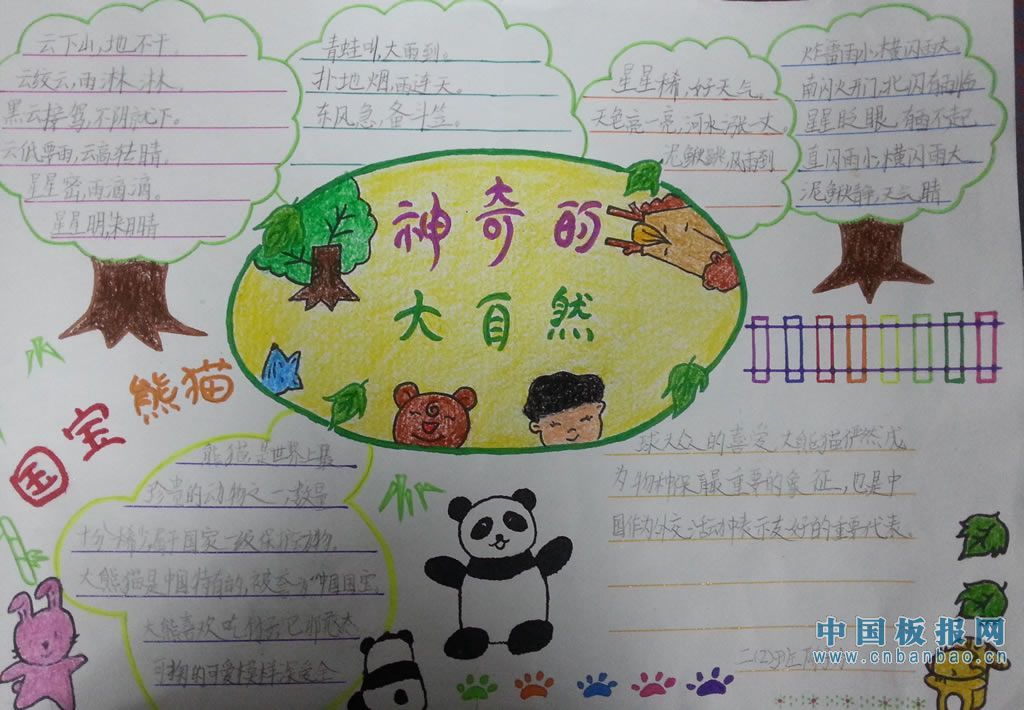 云下山,地不干。
云绞云,雨淋淋。
黑云接驾,不阴就下。
云低要雨,云高转晴。
星星密,雨滴滴。
星星明,来日晴
青蛙叫,大雨到。
扑地烟,雨连天。
东风急,备斗笠。
星星稀,好天气。
天色亮一亮,河水涨一丈。
泥鳅跳,风雨到
炸雷雨小,横闪雨大。
南闪火开门,北闪有雨临
星星眨眼,有雨不起
直闪雨小,横闪雨大
泥鳅静,天气晴
神奇的
大自然
国宝熊猫
熊猫是世界上最
珍贵的动物之一,数量
十分稀少,属于国家一级保护动物,
大熊猫是中国特有的,被
中国国宝
大熊喜欢吃竹
可爱模样深受全
球大众的喜爱,大熊猫俨然成
为物种保护最重要的象征,也是中
国作为外交活动中表示友好的重要代表。
二(2)班
中国板报网
www.cnbanbao.cn